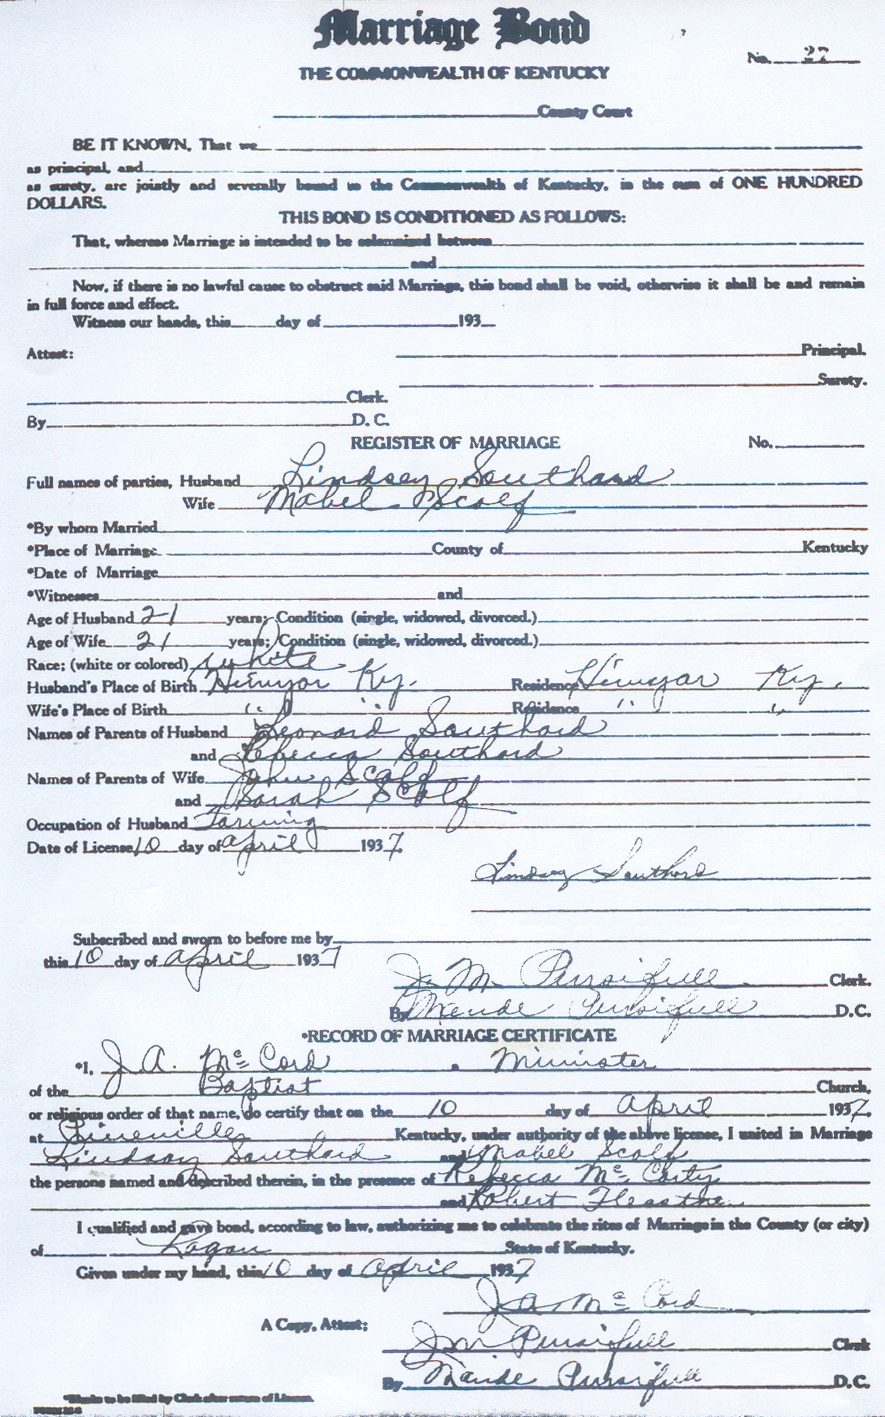 Marriage Bond
No. 27
THE COMMONWEALTH OF KENTUCKY
County Court
BE IT KNOWN, That we
as principal, and
as surety, are jointly and severally bound to the Commonwealth of Kentucky, in the sum of ONE HUNDRED
DOLLARS.
THIS BOND IS CONDITIONED AS FOLLOWS:
That, whereas Marriage is intended to be solemnized between
and
Now, if there is no lawful cause to obstruct said Marriage, this bond shall be void, otherwise it shall be and remain
in full force and effect.
Witness our hands, this day of 193
Attest: Principal.
Surety.
Clerk.
By D. C.
REGISTER OF MARRIAGE No.
Full names of parties, Husband Lindsey Southard
Wife Mabel Scalf
*By whom Married
*Place of Marriage County of Kentucky
*Date of Marriage
*Witnesses and
Age of Husband 21 years; Condition (single, widowed, divorced.)
Age of Wife 21 years; Condition (single, widowed, divorced.)
Race; (white or colored) white
Husband's Place of Birth Hinyar Ky. Residence Hinyar Ky.
Wife's Place of Birth " " Residence " "
Names of Parents of Husband Leonard Southard
and Rebecca Southard
Names of Parents of Wife John Scalf
and Sarah Scalf
Occupation of Husband Farming
Date of License 10 day of April 1937
Lindsey Southard
Subscribed and sworn to before me by
this 10 day of April 1937
J. M. Pursifull Clerk.
By Maude Pursifull D.C.
*RECORD OF MARRIAGE CERTIFICATE
*I, J. A. McCord a Minister
of the Baptist Church,
or religious order of that name, do certify that on the 10 day of April 1937
at Pineville Kentucky, under authority of the above license, I united in Marriage
Lindsay Southard and Mabel Scalf
the persons named and described therein, in the presence of Rebecca McCarty
and Robert
I qualified and gave bond, according to law, authorizing me to celebrate the rites of Marriage in the County (or city)
of Logan State of Kentucky.
Given under my hand, this 10 day of April 1937
J A McCord
A Copy, Attest: J M Pursifull Clerk
By Maude Pursifull D.C.
*Blanks to be filled by Clerk after return of License.